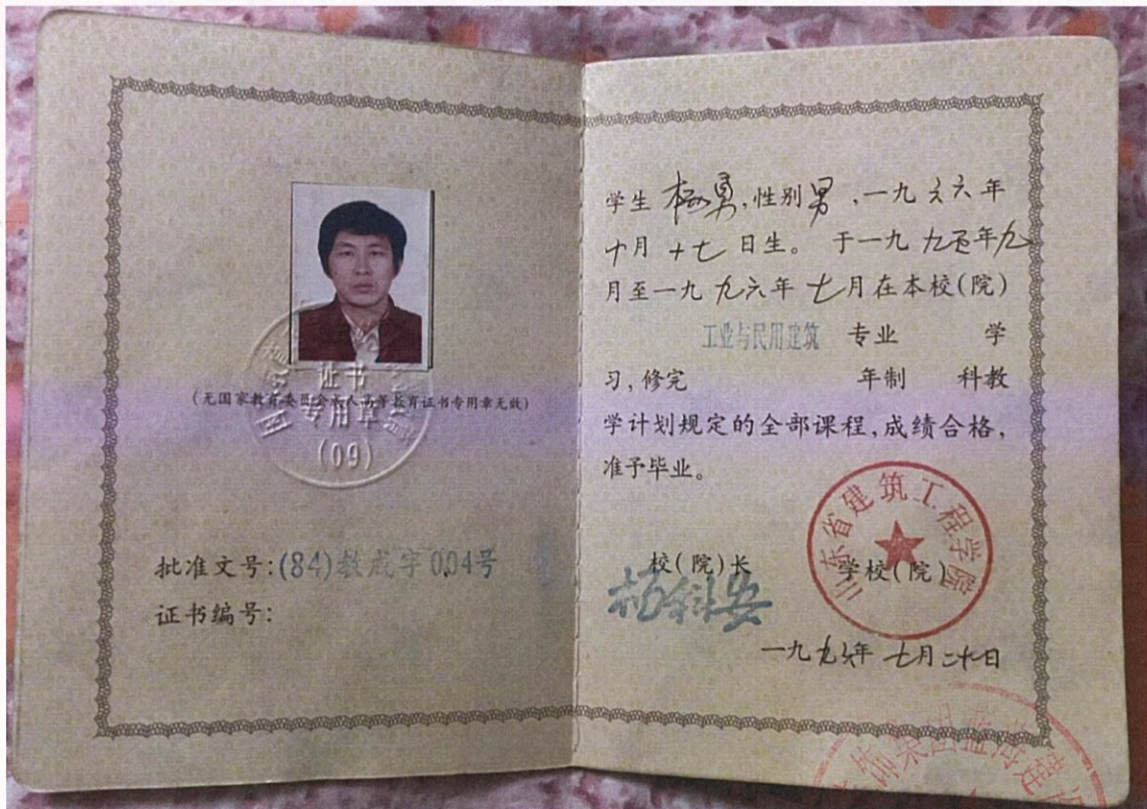 证书
(无国家教育委员会成人高等教育证书专用章无效)
专用章
(09)
批准文号:(84)教成字004号
证书编号:
学生 勇,性别男,一九六六年
十月十七日生。于一九九五年九
月至一九九六年七月在本校(院)
工业与民用建筑 专业 学
习,修完 年制 科教
学计划规定的全部课程,成绩合格,
准予毕业。
山东省建筑工程学院
校(院)长 学校(院)
一九九六年七月二十日